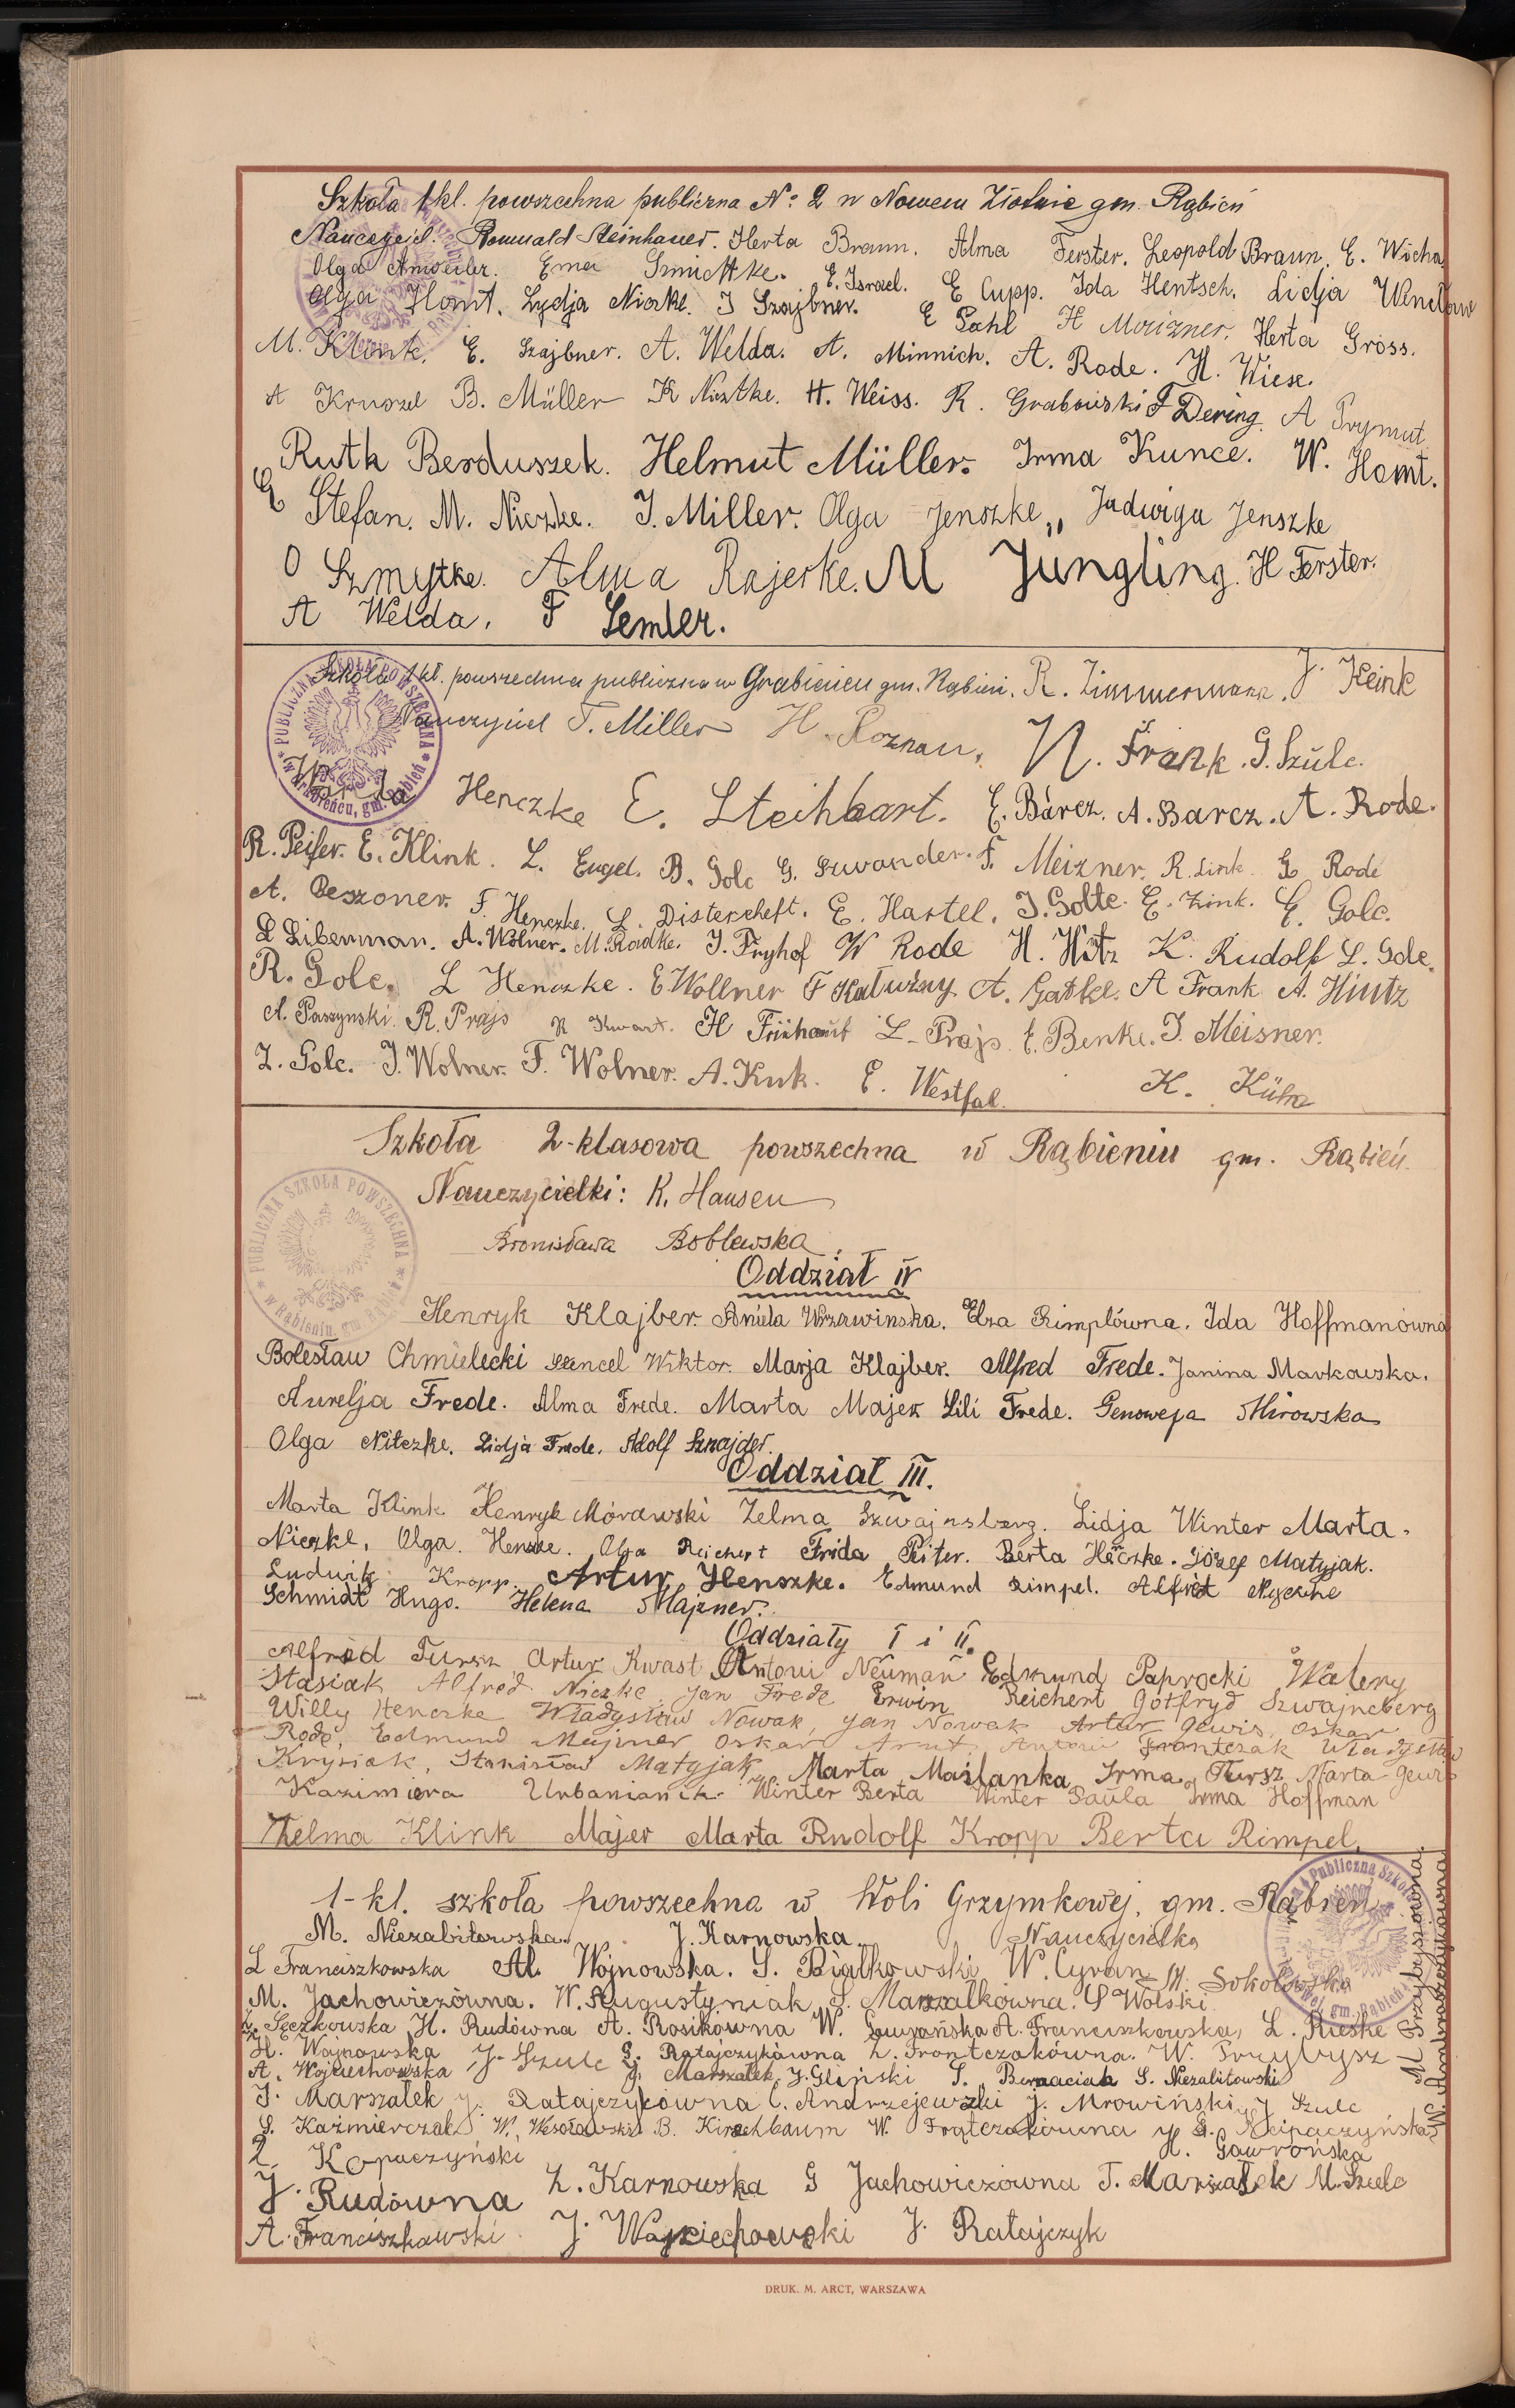 Szkoła 1 kl. powszechna publiczna No 2 w Nowem Złotnie gm. Rąbień
Nauczyciel: Romuald Steinhauer. Herta Braun. Alma Ferster. Leopold Braun. E. Wicha
Olga Anweiler. Ema Smichtke. E. Israel. E Cupp. Ida Hentsch. Lidja Wencław
Olga Homt. Lydja Niczke. I Szajbner. E Pahl H Maizner. Herta Gross.
M. Klink. E. Szajbner. A. Welda. A. Minnich. A. Rode. H. Wiese.
A Kruszel B. Müller K Nicztke. H. Weiss. R. Grabowski F Dering. A Prymut.
Ruth Berduszek. Helmut Müller. Irma Kunce. W. Homt.
E Stefan. M. Niczke. J. Miller. Olga Jenszke,, Jadwiga Jenszke
O Szmytke. Alma Rajerke. M Jüngling. H Ferster.
A Welda. F Semler.
PUBLICZNA SZKOŁA POWSZECHNA * w Grabieńcu, gm. Rąbień *
Szkoła 1 kl. powszechna publiczna w Grabieńcu gm. Rąbień. R. Zimmermann. J. Keink
Nauczyciel T. Miller H. Roznau. N. Frank. G. Szulc.
Henczke E. Steinbart. E. Barcz. A. Barcz. A. Rode.
R. Peiser. E. Klink. L. Engel. B. Golc G. Suwander. F. Meizner. R. Link. G Rode
A. Beszoner. F. Henczke. L. Distercheft. E. Hartel. J. Golte. E. Zink. E. Golc.
L Liberman. A. Wolner. M. Radke. J. Fryhof W Rode H. Hitz K. Rudolf L. Golc.
R. Golc. L Henczke. E. Wollner F Kałużny A. Gatke. A Frank A. Hintz
A. Paszynski. R. Prajs R Kwart. H Frühauf L. Prajs. E. Benke. J. Meisner.
Z. Golc. J. Wolner. F. Wolner. A. Kuk. E. Westfal. K. Kühn
Szkoła 2-klasowa powszechna w Rąbieniu gm. Rąbień.
PUBLICZNA SZKOŁA POWSZECHNA * w Rąbieniu, gm. Rąbień *
Nauczycielki: K. Hausen
Bronisława Boblewska.
Oddział IV
Henryk Klajber. Aniela Wrzawinska. Elza Rimplówna. Ida Hoffmanówna
Bolesław Chmielecki Szencel Wiktor. Marja Klajber. Alfred Frede. Janina Markowska.
Aurelja Frede. Alma Frede. Marta Majer Lili Frede. Genowefa Mirowska
Olga Nitczke. Lidja Frede. Adolf Sznajder.
Oddział III.
Marta Klink Henryk Morawski Zelma Szwajnsberg. Lidja Winter Marta.
Niczke. Olga. Henszke. Olga Reichert Frida Peiter. Berta Heczke. Józef Matyjak.
Ludwik Kropp. Artur Henszke. Edmund Rimpel. Alfred
Schmidt Hugo. Helena Majzner.
Oddziały I i II.
Alfred Tursz Artur Kwast Antoni Neuman Edmund Paprocki Walery
Stasiak Alfred Niczke Jan Frede Erwin Reichert Gotfryd Szwajncberg
Willy Henczke Władysław Nowak, Jan Nowak Artur Gewis, Oskar
Rode, Edmund Majzner Oskar Arnt, Antoni Frontczak Władysław
Krysiak, Stanisław Matyjak Marta Maślanka Irma Tursz Marta Gewis
Kazimiera Urbaniank. Winter Berta Winter Paula Irma Hoffman
Zelma Klink Majer Marta Rudolf Kropp Berta Rimpel.
1-kl. szkoła powszechna w Woli Grzymkowej, gm. Rąbień
M. Niezabitowska. J. Karnowska Nauczycielka
L Franciszkowska Al. Wojnowska. S. Białkowski W. Cyran M. Sokołowska
M. Jachowiczówna. W. Augustyniak S. Marszałkówna. S Wolski
Z. Sęczkowska H. Rudówna A. Rosikówna W. Gawrońska A. Franciszkowska, L. Rieske
H. Wojnowska J. Szulc G. Ratajczykówna Z. Frontczakówna. W. Przybysz
A. Wojciechowska J. Marszałek J. Gliński S. Bernaciak S. Niezabitowski
J. Marszałek J. Ratajczykówna C. Andrzejewski J. Mrowiński J Szulc
S. Kaźmierczak W. Wesołowski B. Kirschbaum W. Frątczakówna
Z. Kopaczyński H. Gawrońska
J. Rudówna Z. Karnowska G Jachowiczówna T. Marszałek M. Szulc
A. Franciszkowski J. Wojciechowski J. Ratajczyk
M Przybyszówna.
DRUK. M. ARCT, WARSZAWA